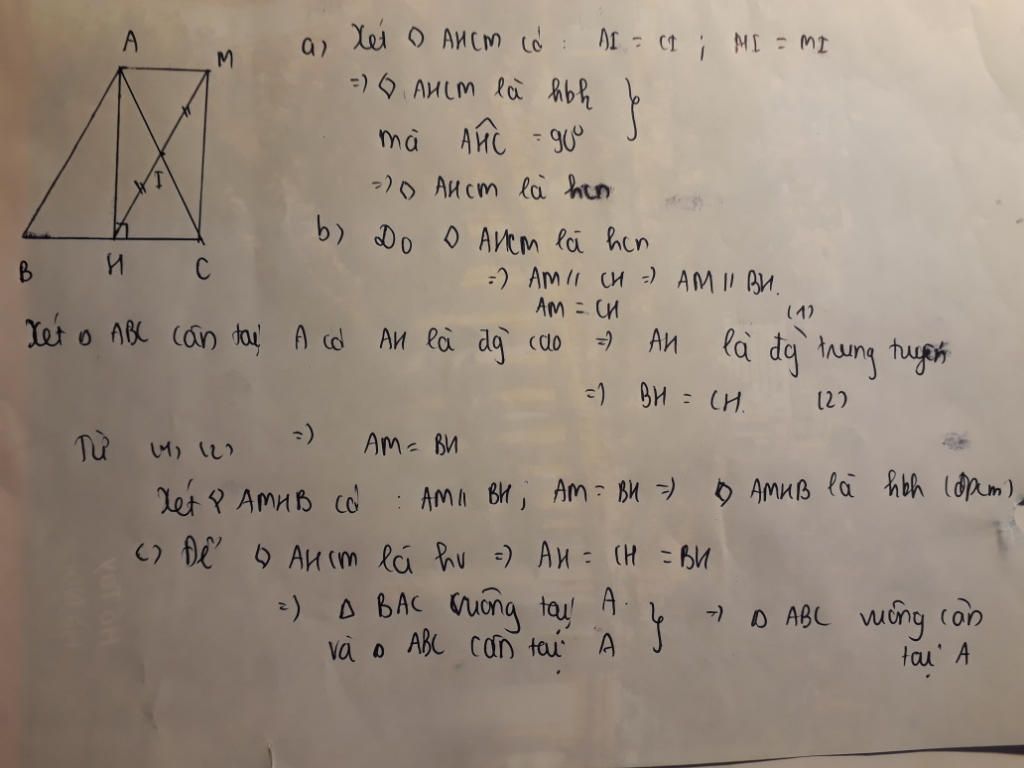 A
M
I
B
H
C
a) Xét ◊ AHCM có : AI = CI ; MI = MI
=> ◊ AHCM là hbh }
mà AĤC = 90°
=> ◊ AHCM là hcn
b) Do ◊ AHCM là hcn
=> AM // CH => AM // BH.
AM = CH (1)
Xét Δ ABC cân tại A có AH là đg cao => AH là đg trung tuyến
=> BH = CH. (2)
Từ (1), (2) => AM = BH
Xét ◊ AMHB có : AM // BH ; AM = BH => ◊ AMHB là hbh (đpcm)
c) Để ◊ AHCM là hv => AH = CH = BH
=> Δ BAC vuông tại A. } => Δ ABC vuông cân
và Δ ABC cân tại A tại A